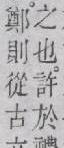 之也許於禮
鄭則從古文